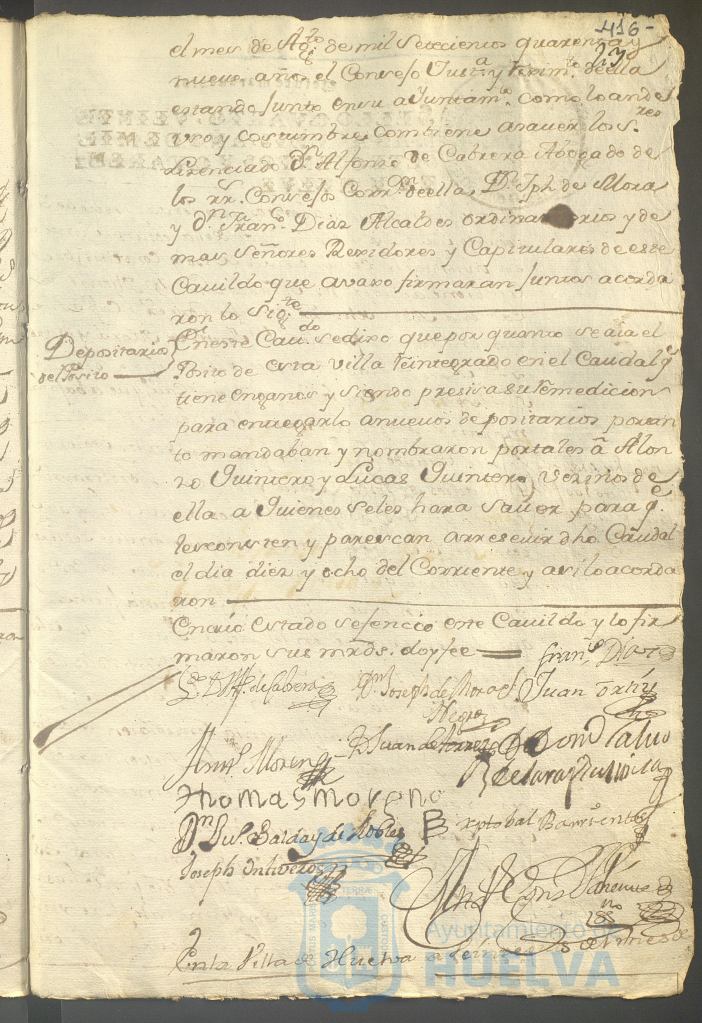 416-
27
el mes de Agto de mil Setecientos quarenta y
nueve años el Consejo Justa y rexim.to de ella
estando junto en su ayuntam.to como lo an de
uso y costumbre combiene a sauer los S.res
Lizenciado Dn Alfonso de Cabrera Abogado de
los rr.s Consejos Corr.or de ella, Dn Jph de Mora
y dn Fran.co Diaz Alcaldes ordinarios y de
mas Señores Rexidores y Capitulares de este
Cauildo que auaxo firmaran juntos acorda
ron lo Sig.te
Depositarios
del Posito
En este Cau.do se dixo que por quanto se aia el
Posito de esta Villa reintegrado en el Caudal q.e
tiene en granos y siendo presisa su remedicion
para entregarlo a nuevos depositarios por tan
to mandaban y nombraron por tales â Alon
zo Quintero y Lucas Quintero vezinos de
ella a Quienes se les hara sauer para q.e
les consten y parescan a rreseuir dho Caudal
el dia diez y ocho del Corriente y asi lo acorda
ron
En cuio Estado se fenecio este Cauildo y lo fir
maron sus mrds. doy fee
Fran.co Diaz
L.do D. Alf. de Cabrera
Dn Joseph de Mora
Negro
Juan ortiz
Ant.o Moreno
D Juan de
Thomas Moreno
Dn Juo. Garday de Robles
Xptobal Barrientos
Joseph Ontiveros
En la Villa de Huelva a
PORTUS MARIS ET TERRAE CUSTODIA
Ayuntamiento de
HUELVA